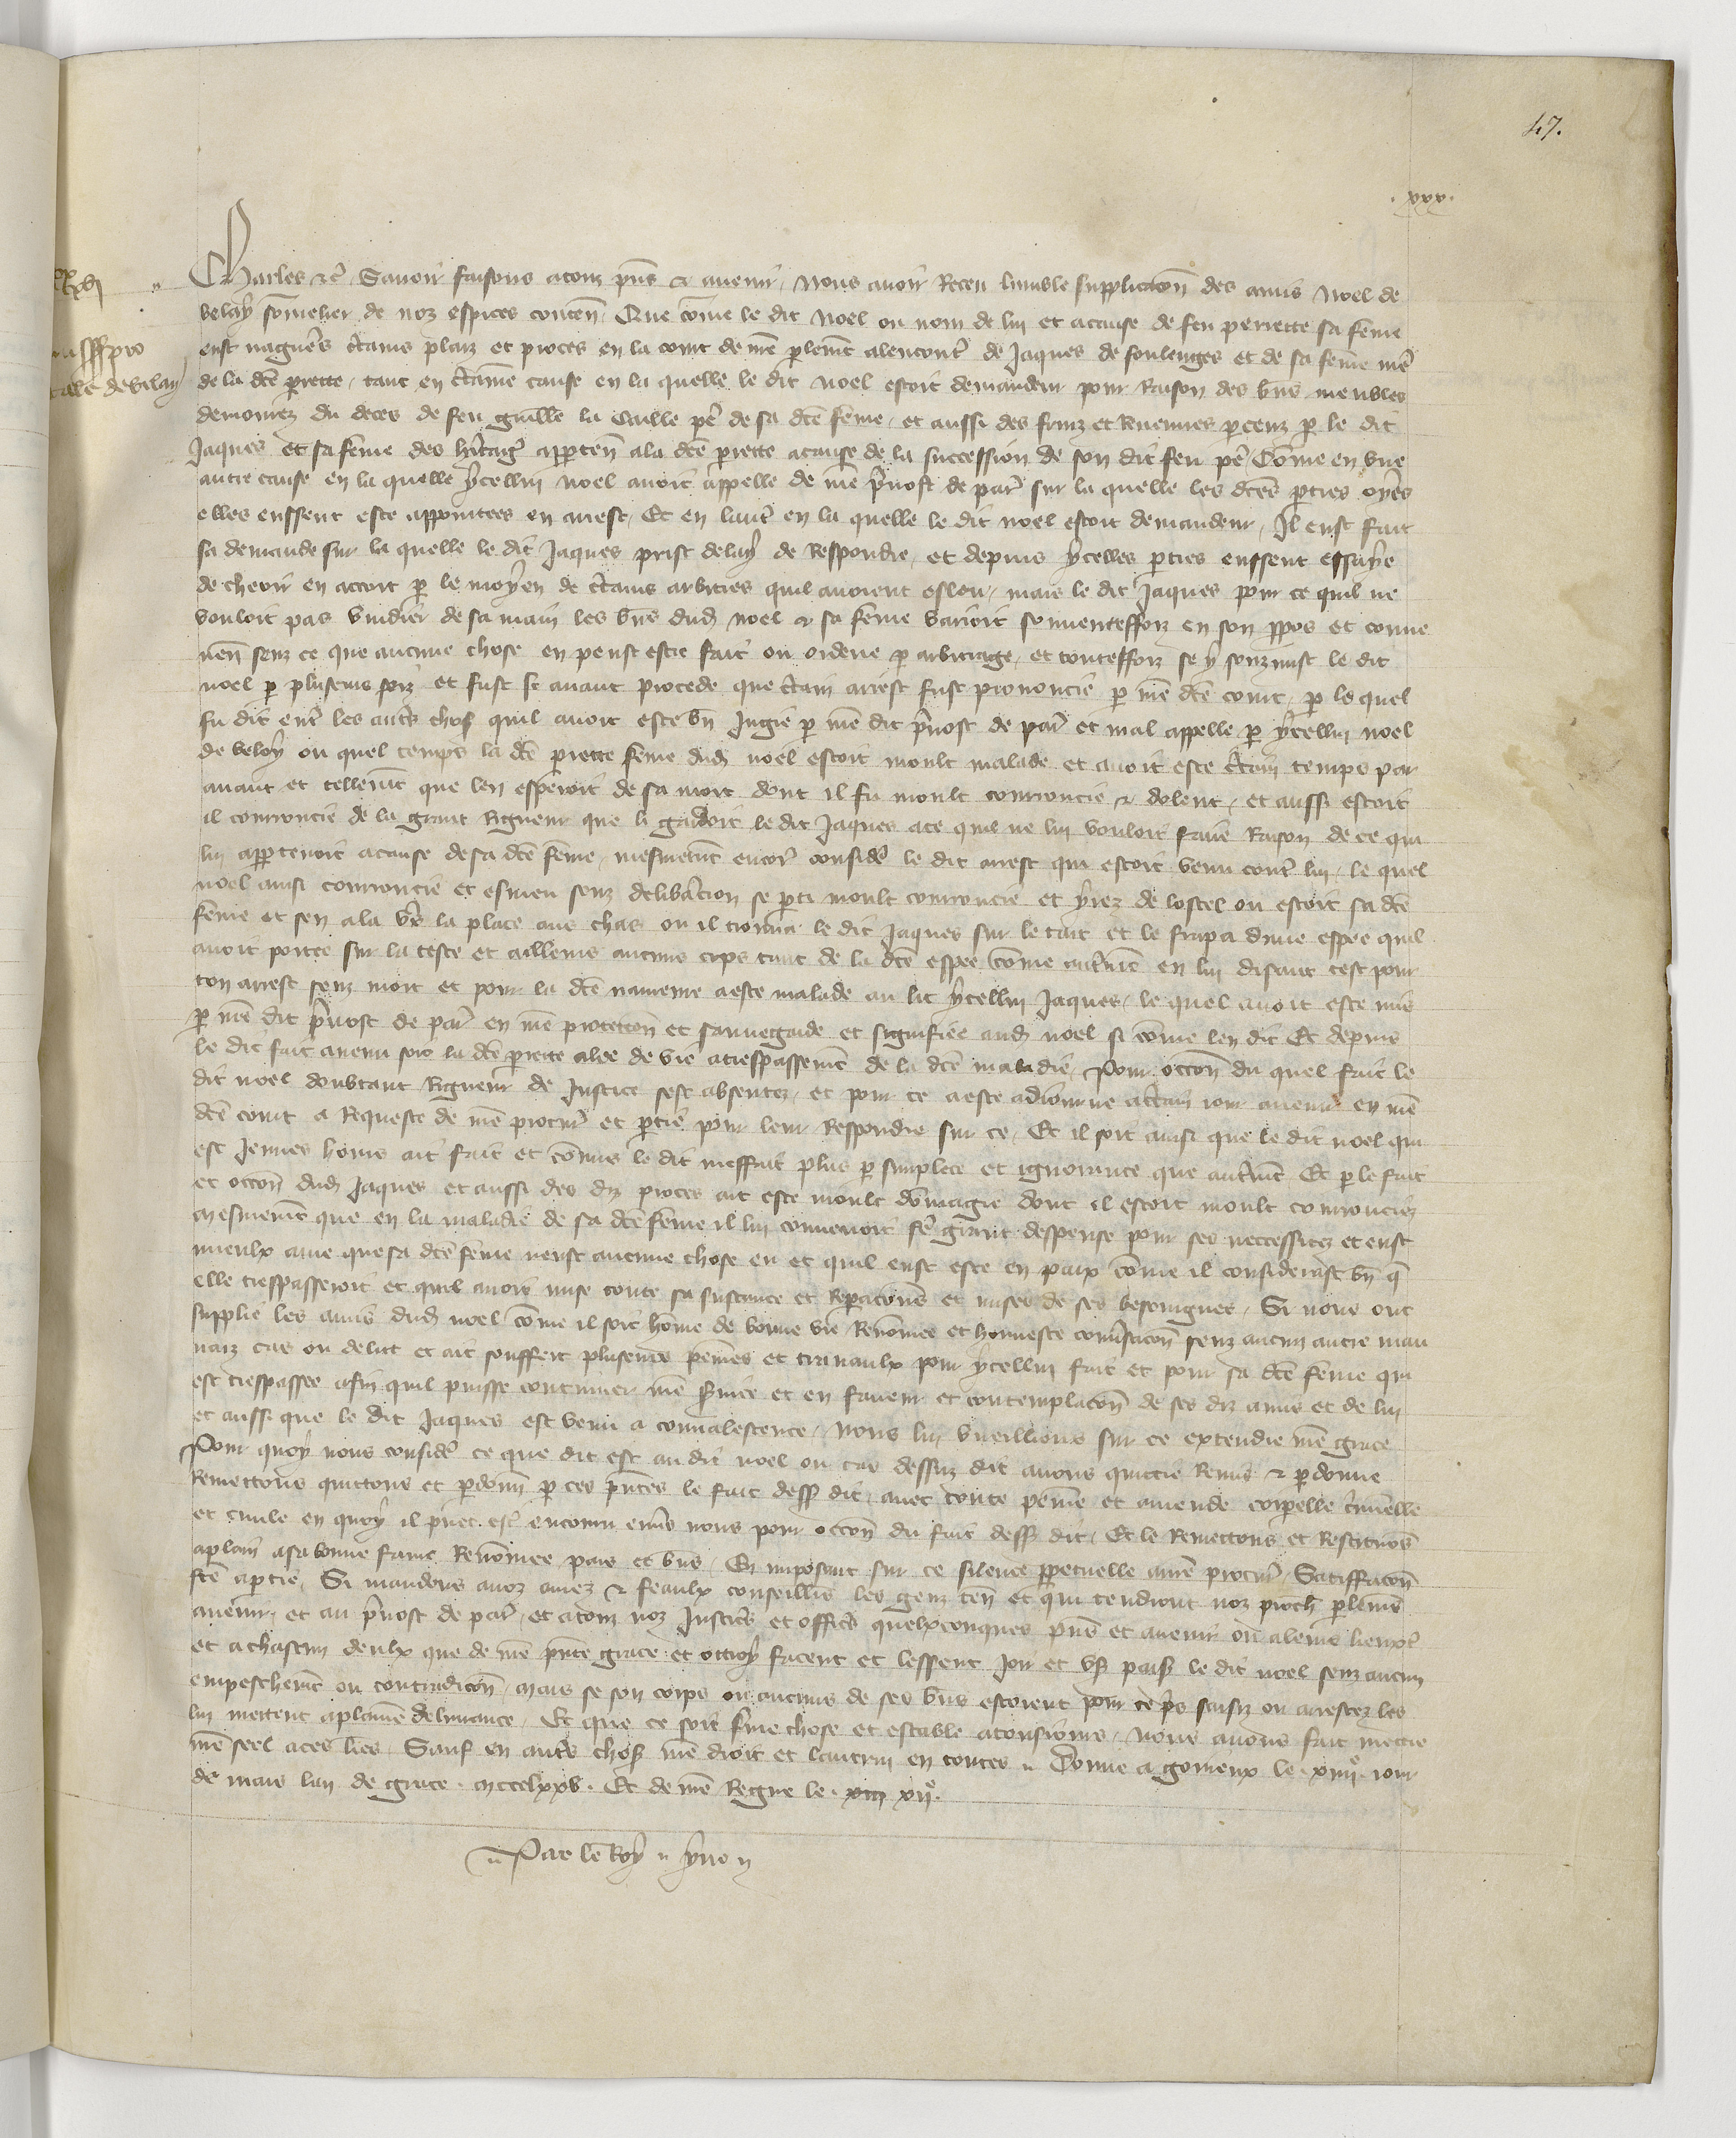 47.
.xxx.
Charles etc̃. Savoir faisons a touz p̃ns et avenir. Nous avoir Receu lumble supplicac̃on des amis Noel de
velay som̃elier de noz espices conten̄. Que com̃e le dit Noel ou nom de lui et a cause de feu perrette sa feme
eust nagueres c̃tains plaiz et proces en la court de nr̃e parlem̃t alencontr̃ de Jaques de soulenges et de sa feme mer̃
de la dc̃e p̃rette, tant en c̃taine cause en la quelle le dit Noel estoit demandeur pour Raison des biens meubles
demourez du deces de feu guill̃e la Caille per̃ de sa dc̃e feme, et aussi des fruiz et Revenues perceuz par le dit
Jaques et sa feme des heritaig̃ apparten̄ a la dc̃e p̃rette a cause de la succession de son dit feu per̃, Com̃e en une
autre cause en la quelle ycellui Noel avoit appelle de nr̃e p̃vost de par̃ sur la quelle les dc̃es parties oyes
elles eussent este appointees en arrest, Et en lautr̃ en la quelle le dit noel estoit demandeur, Il eust fait
sa demande sur la quelle le dit Jaques prist delay de Respondre, et depuis ycelles parties eussent essaye
de cheoir en accort par le moyen de c̃tains arbitres quil avoient esleu, mais le dit Jaques pour ce quil ne
vouloit pas vuidier de sa main les bn̄s dud noel et sa feme varioit souventeffoiz en son propos et conve
nen̄ senz ce que aucune chose en peust estre fait ou ordene par arbitrage, et touteffoiz se y souzmist le dit
noel par pluseurs foiz et fust si avant procede que c̃tain arrest fust prononcie par nr̃e dc̃e court, par le quel
fu dit entr̃ les autr̃s chos̃ quil avoit este bn̄ Jugie par nr̃e dit p̃vost de par̃ et mal appelle par ycellui noel
de veloy ou quel temps la dc̃e p̃rette feme dud noel estoit moult malade et avoit este c̃tain temps par
avant et tellem̃t que len esperoit de sa mort dont il fu moult courroucie et dolent, et aussi estoit
il courroucie de la grant Rigueur que li gardoit le dit Jaques a ce quil ne lui vouloit faire Raison de ce qui
lui appartenoit a cause de sa dc̃e feme, mesmem̃t encor̃ consider̃ le dit arrest qui estoit venu contr̃ lui, le quel
noel ainsi courroucie et esmeu senz deliberacion se parti moult courroucie et yriez de lostel ou estoit sa dc̃e
feme et sen ala vers la place aus chas ou il trouva le dit Jaques sur le tart et le frapa dune espee quil
avoit portee sur la teste et ailleurs aucuns cops tant de la dc̃e espee com̃e autrem̃t en lui disant cest pour
ton arrest senz mort et pour la dc̃e navreure a este malade au lit ycellui Jaques, le quel avoit este mis
par nr̃e dit p̃vost de par̃ en nr̃e protection et sauvegarde et signifiee aud noel si com̃e len dit Et depuis
le dit fait avenu soit la dc̃e p̃rette alee de vie a trespassem̃t de la dc̃e maladie, Pour occon̄ du quel fait le
dit noel doubtant Rigueur de Justice sest absentez, et pour ce a este adiourne a c̃tain iour avenir en nr̃e
dc̃e court a Requeste de nr̃e procur̃ et partie pour leur Respondre sur ce, Et il soit ainsi que le dit noel qui
est Jeunes homs ait fait et com̃is le dit meffait plus par simplece et ignorance que autrem̃t Et par le fait
et occon̄ dud Jaques et aussi des diz proces ait este moult dom̃agie dont il estoit moult courrouciez
mesmem̃t que en la maladie de sa dc̃e feme il lui convenoit fer̃ grant despense pour ses neccessitez et eust
mieulx ame que sa dc̃e feme neust aucune chose eu et quil eust este en paix com̃e il considerast bn̄ q̃
elle trespasseroit et quil avoit mise toute sa sustance et Reparacions et mises de ses besoingnes, Si nous ont
supplie les amis dud noel com̃e il soit hom̃e de bonne vie Renom̃ee et honneste convsacon̄ senz aucun autre mau
vaiz cas ou delict et ait souffert pluseurs peines et travaulx pour ycellui fait et pour sa dc̃e feme qui
est trespassee afin quil puisse continuer nr̃e service et en faveur et contemplacon̄ de ses diz amis et de lui
et aussi que le dit Jaques est venu a convalescence, Nous lui vueillions sur ce extendre nr̃e grace
Pour quoy nous consider̃ ce que dit est au dit noel ou cas dessuz dit avons quittie Remis et pardonne
Remettons quittons et pardonn̄ par ces p̃ntes le fait dess̃ dit, avec toute peine et amende corporelle criminelle
et civile en quoy il puet estr̃ encouru envers nous pour occon̄ du fait dess̃ dit, Et le Remettons et Restituons
a plain a sa bonne fame Renom̃ee pais et bn̄s, En imposant sur ce silence perpetuelle a nr̃e procur̃, Satiffacon̄
fc̃e a partie, Si mandons a noz amez et feaulx conseilliers les gens ten̄ et qui tendront noz proch̃ parlemens
avenir, et au p̃vost de par̃, et a touz noz Justic̃s et offic̃s quelxconques p̃ns et avenir ou a leurs lieuxt̃
et a chascun deulx que de nr̃e p̃nte grace et ottroy facent et lessent Jor̃ et us̃ paisib̃ le dit noel senz aucun
empeschem̃t ou contradicon̄, Mais se son corps ou aucuns de ses bn̄s estoient pour ce p̃s saisiz ou arrestez les
lui mettent a plaine delivrance, Et que ce soit ferme chose et estable a tousiours, Nous avons fait mettre
nr̃e seel a ces lr̃es, Sauf en autr̃s chos̃ nr̃e droit et lautrui en toutes. Donne a gonieux le .xiiii.e iour
de mars lan de grace .mccclxxv. Et de nr̃e Regne le .xiii xii.e
Par le Roy yvo